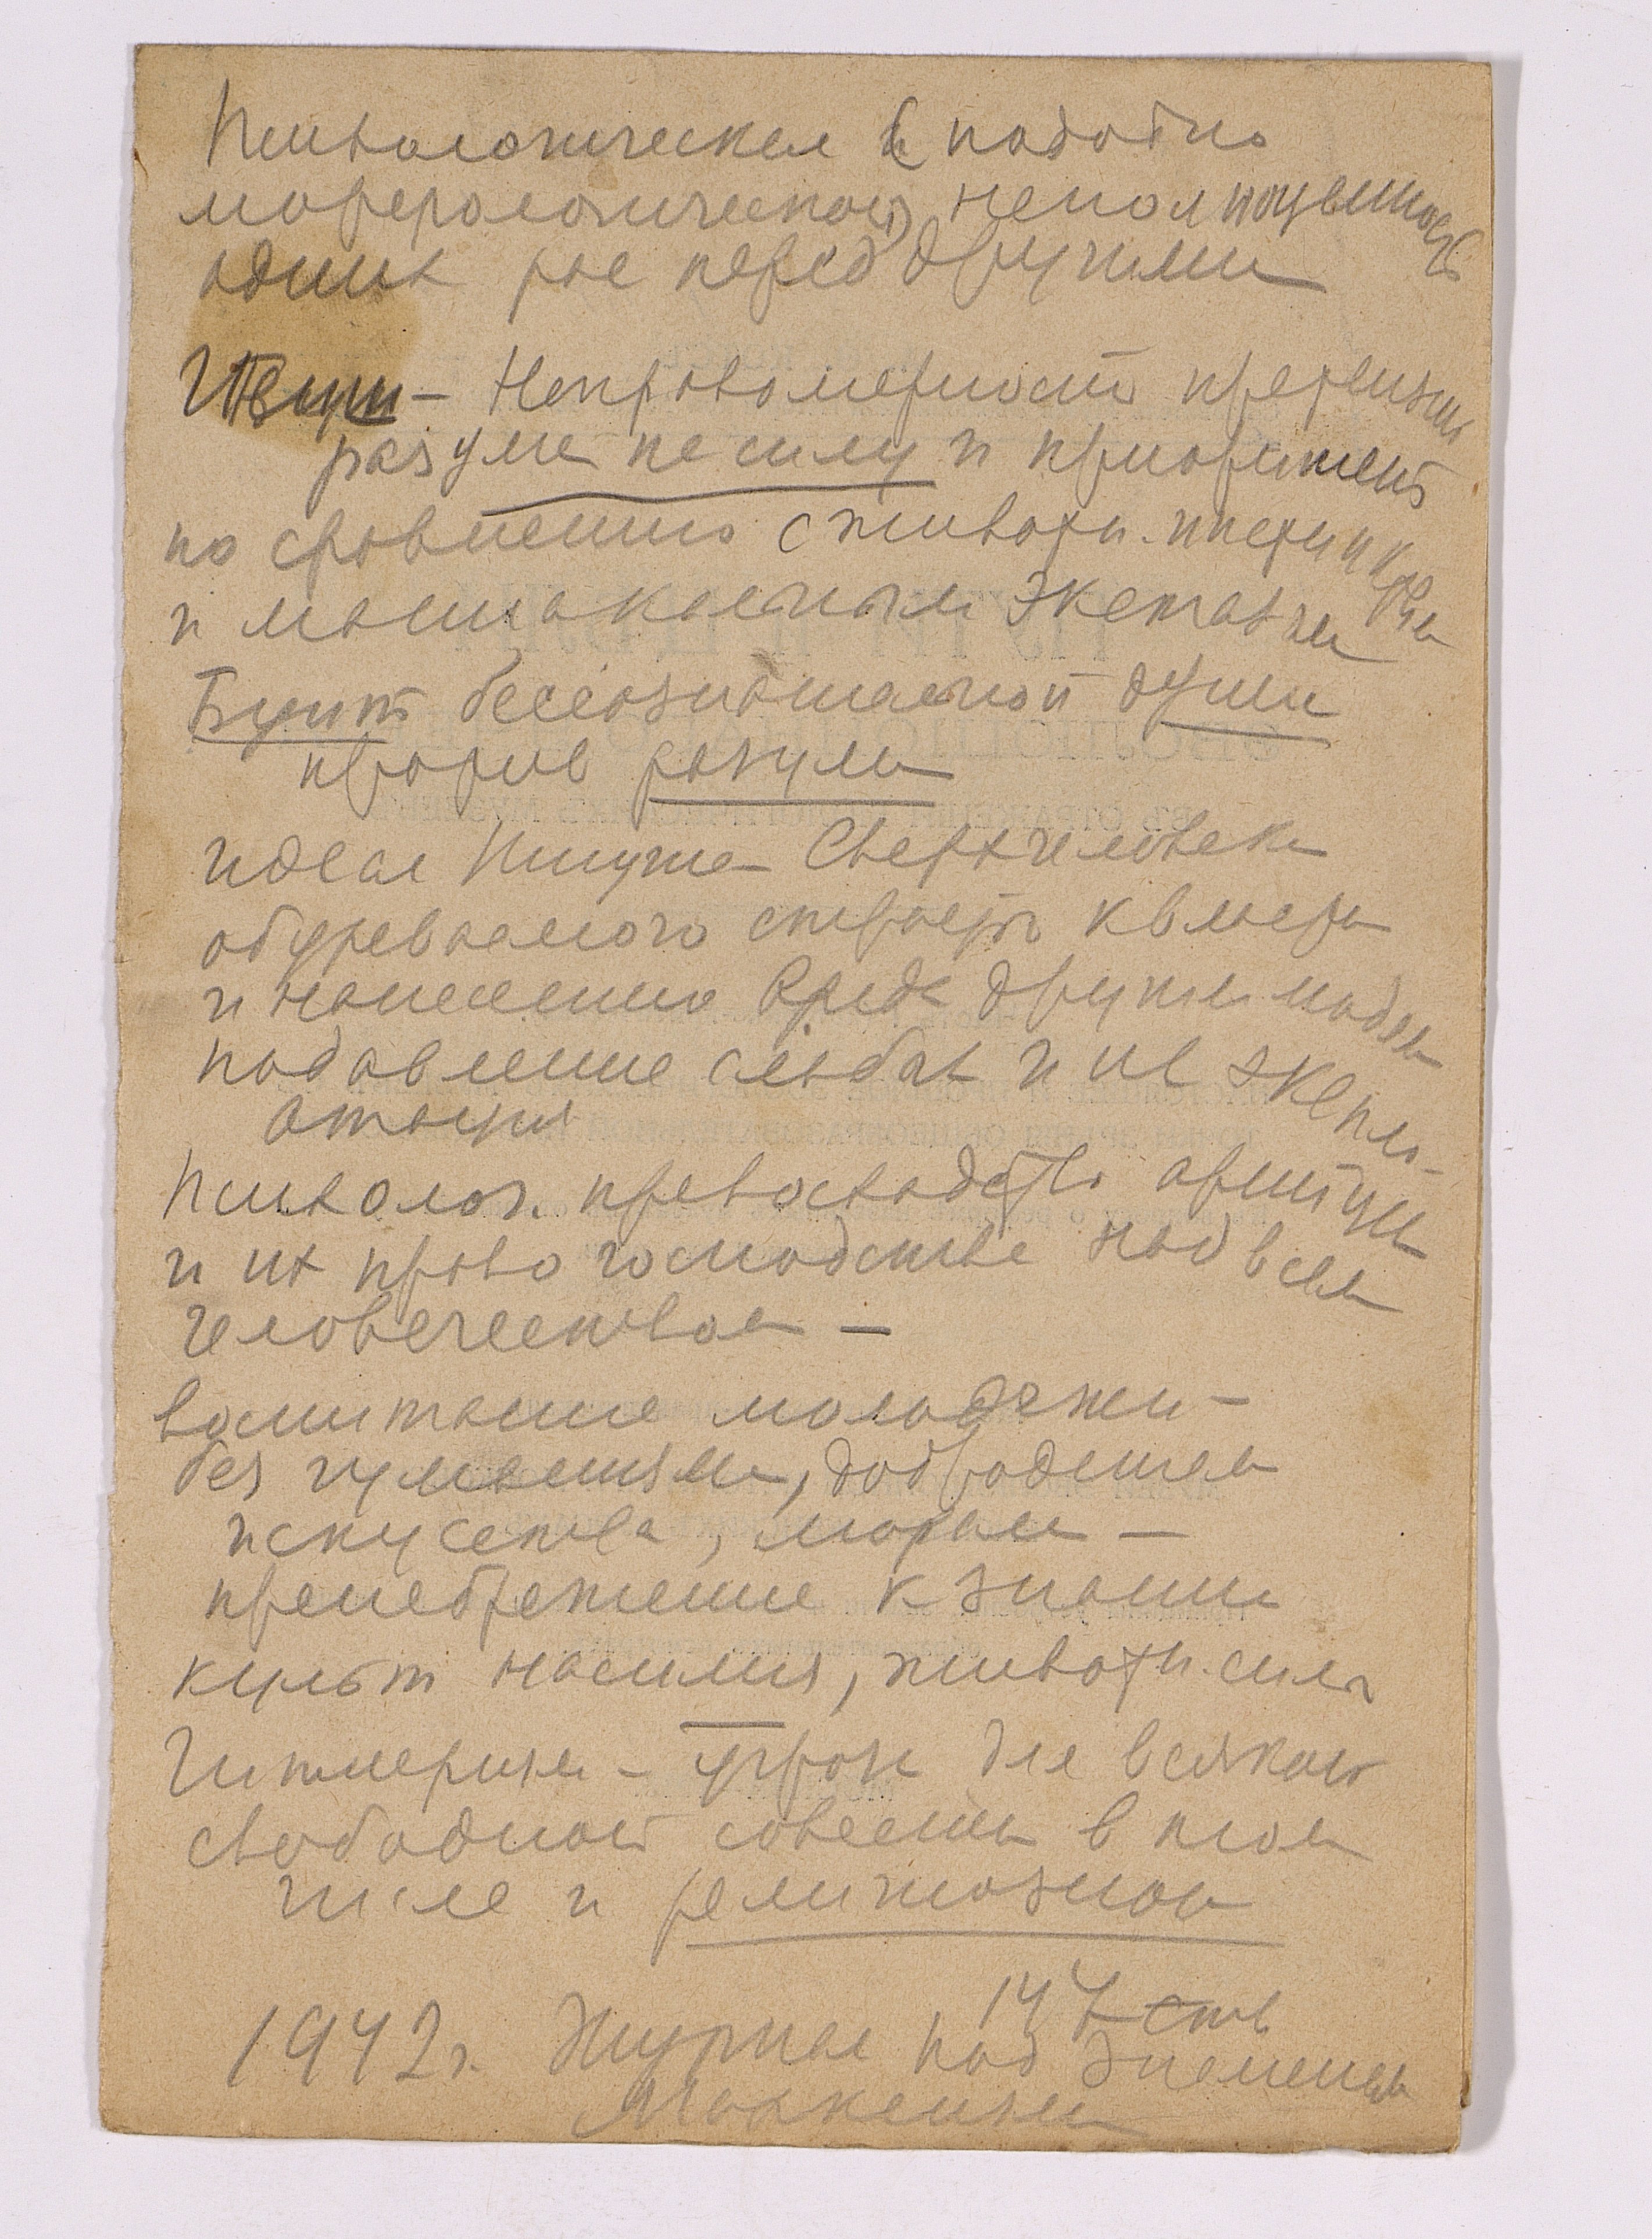 Психологическая и подобно
морфологической, неполноценность
одних рас перед другими
Неправомерность претензии
разума на силу и приоритет
по сравнению с животн. инстинктом
и мышлением экстаза
Бунт бессознательной души
против разума
идеал Ницше Сверхчеловека
обуреваемого страстью к власти
и нанесению вреда другим людям
подавление слабых и их экспло-
атация
Психолог. превосходство арийцев
и их право господства над всем
человечеством —
воспитание молодежи —
без гуманизма, добродетели
искусства, морали —
пренебрежение к знанию
культ насилия, животн. силы
Гитлеризм — угроза для всякой
свободной совести в том
числе и религиозной
147 стр
1942 г. Журнал под знаменем
Марксизма